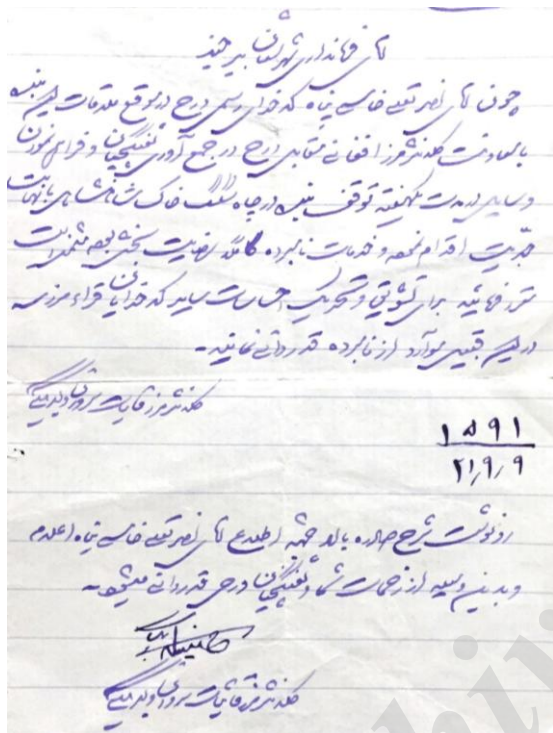 آقای فرمانداری شهرستان بیرجند
چون آقای نصرتعلی خانی پناه کدخدای رسمی درح در موقع ملاقات اینجانب
با معاونت کلانتر مرز افغانی متقابل درح در جمع آوری تفنگچیان و فراهم نمودن
وسایل در مدت یکهفته توقف بنده در چاه سنگ خاک شاهنشاهی با نهایت
جدیت اقدام نموده و خدمات نامبرده کاملا رضایت بخش بوده متمنی است
مقرر فرمائید برای تشویق و تحریک احساسات سایر کدخدایان قراء مرزی
در این قبیل موارد از نامبرده قدردانی نمایند -
کلانتر مرز قاینات سروان
۱۵۹۱
۲۱/۹/۹
رونوشت شرح صادره بالا جهت اطلاع آقای نصرتعلی خانی پناه اعلام
و بدین وسیله از زحمات شما و تفنگچیان درح قدردانی میشود -
کلانتر مرز قاینات سروان